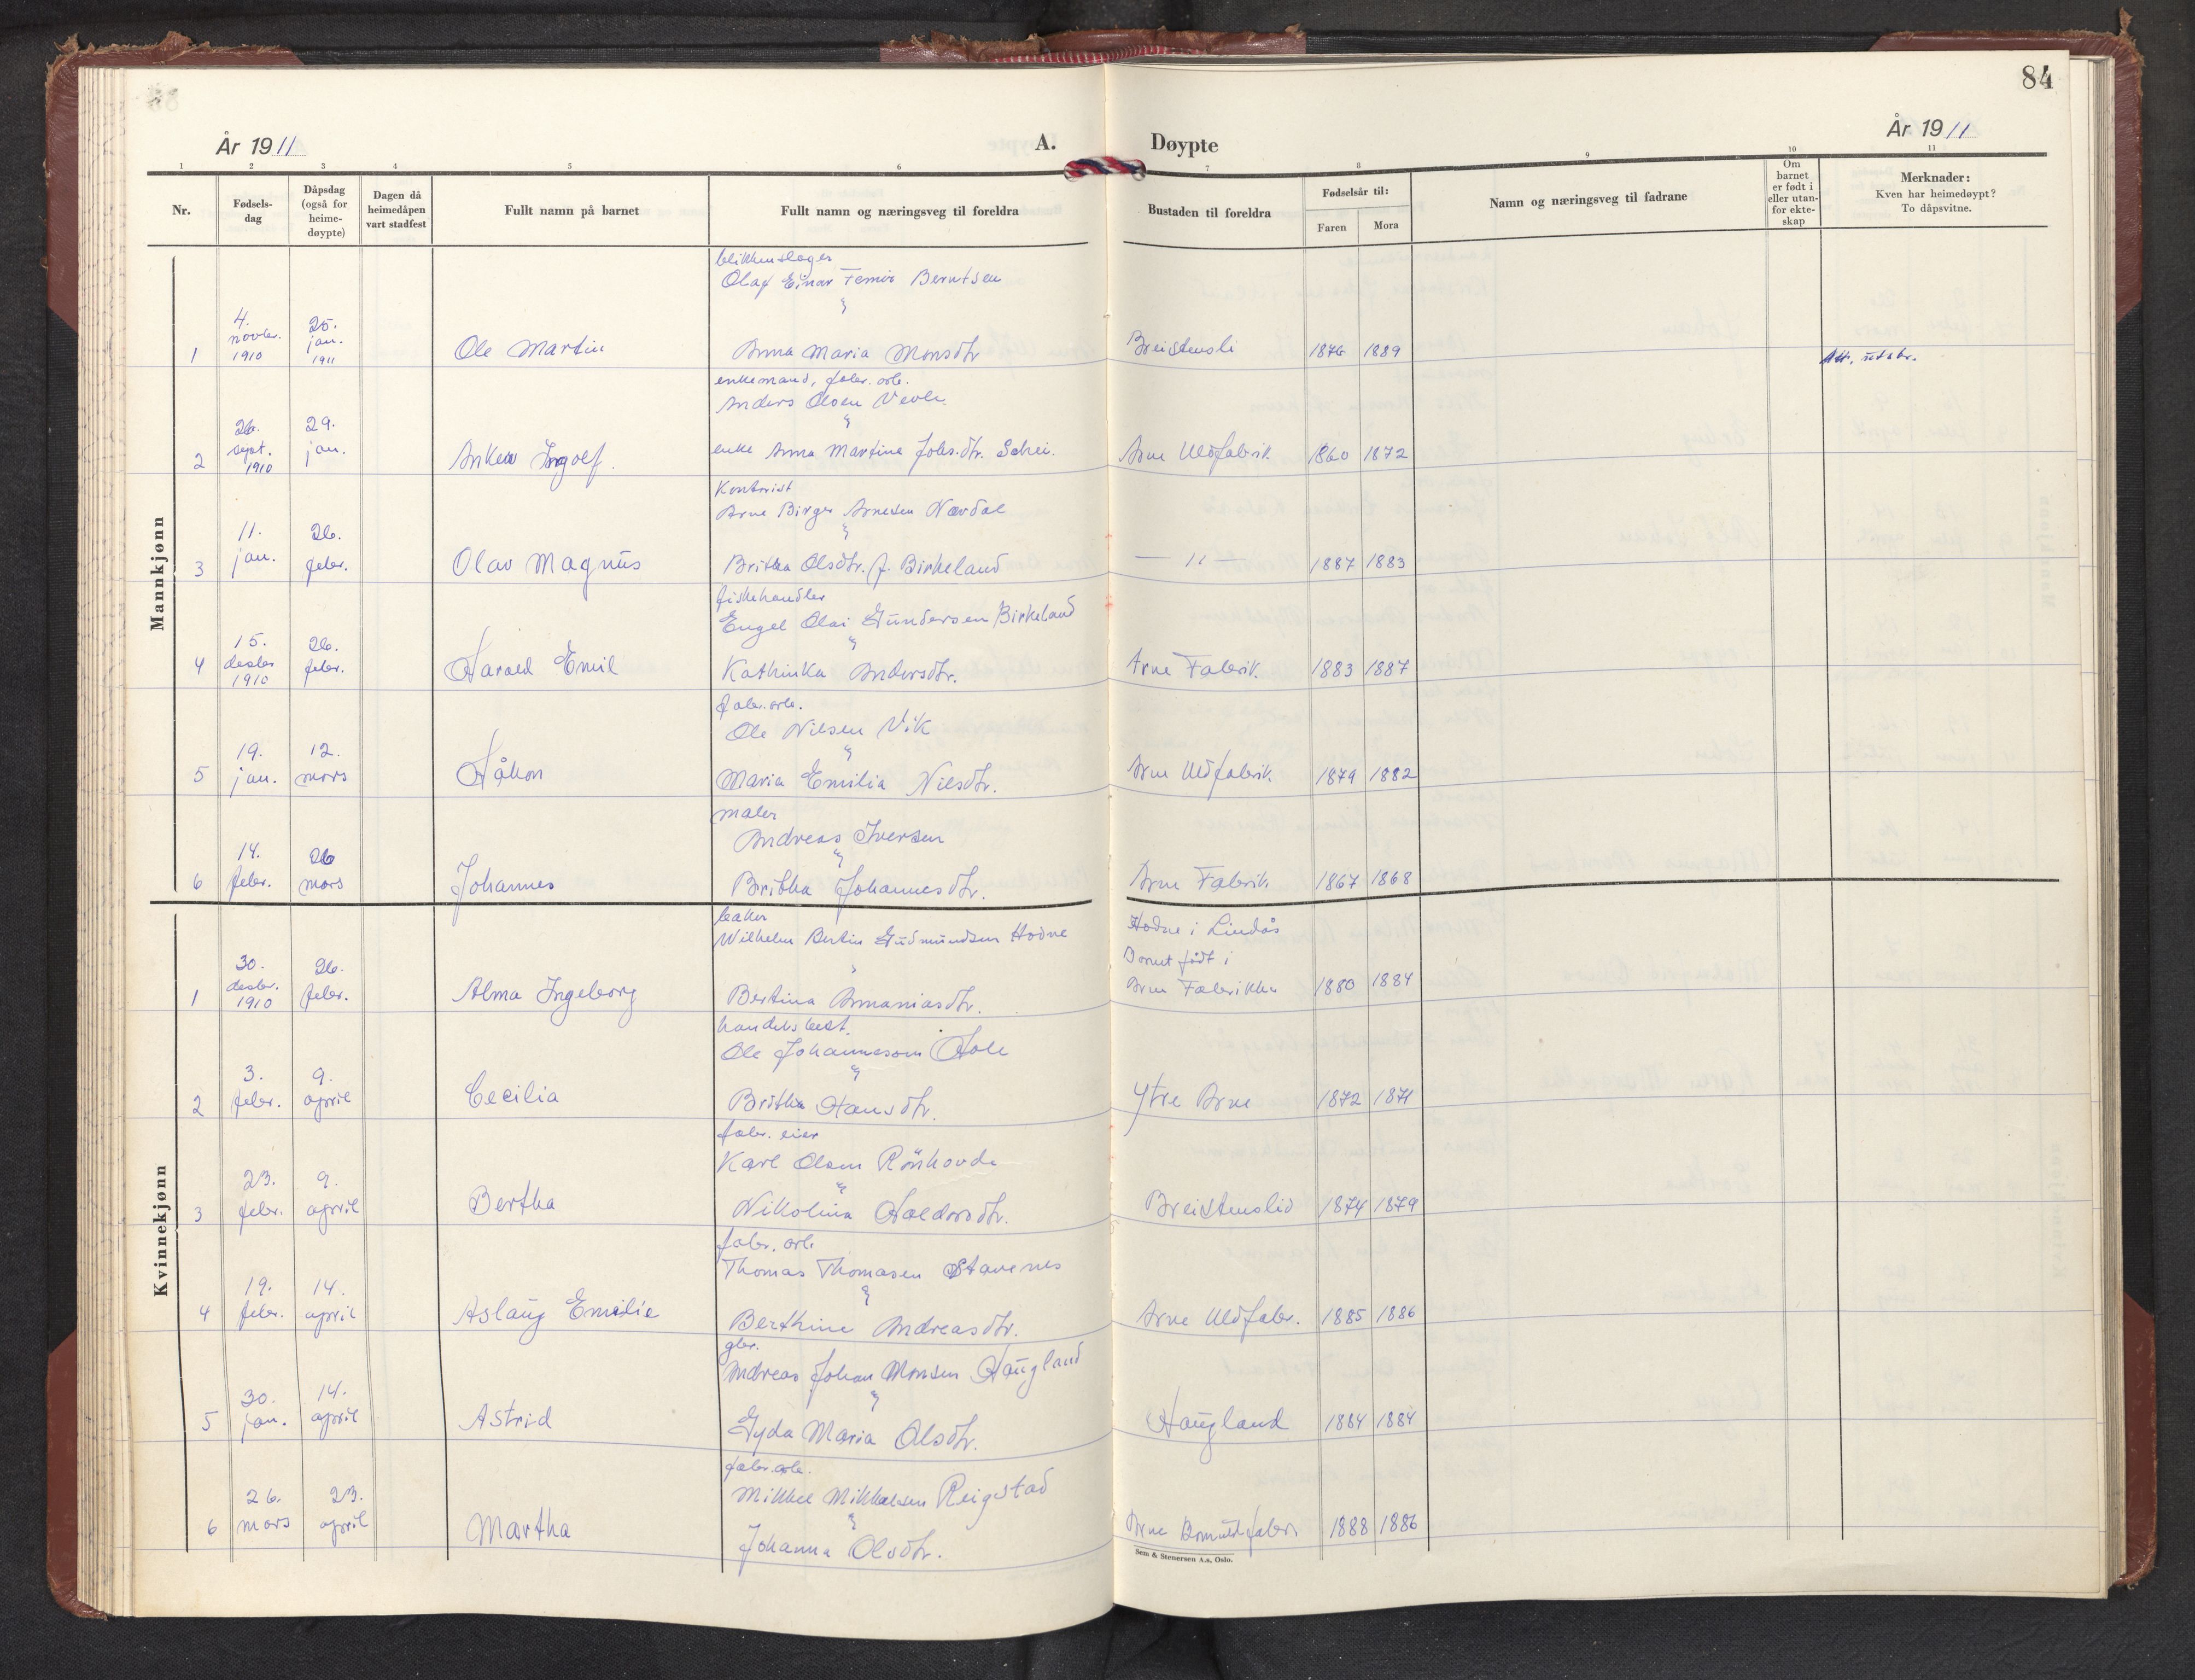 84
År 1911
A.
Døypte
År 1911
1 2 3 4 5 6 7 8 9 10 11
Nr.
Fødsels-
dag
Dåpsdag
(også for
heime-
døypte)
Dagen då
heimedåpen
vart stadfest
Fullt namn på barnet
Fullt namn og næringsveg til foreldra
Bustaden til foreldra
Fødselsår til:
Faren
Mora
Namn og næringsveg til fadrane
Om
barnet
er født i
eller utan-
for ekte-
skap
Merknader:
Kven har heimedøypt?
To dåpsvitne.
Mankjønn
blikkenslager
Olaf Einar Berntsen
1 4. novbr. 1910 25. jan. 1911 Ole Martin Anna Maria Monsdtr Breistensli 1876 1889 Att. utskr.
enkemand, fabr. arb.
Anders Olsen Vevle
2 26. sept. 1910 29. jan. Anker Ingolf enke Anna Martine Johs.dtr. Arne Uldfabrik 1860 1872
Kontorist
Arne Birger Arnesen Navdal
3 11. jan. 26. febr. Olav Magnus Britha Olsdtr. f. Birkeland — 11 — 1887 1883
fiskehandler
Engel Olai Gundersen Birkeland
4 15. desbr 1910 26. febr. Harald Emil Kathinka Andersdtr. Arne Fabrik 1883 1887
fabr. arb.
Ole Nilsen Vik
5 19. jan. 12. mars Håkon Maria Emilia Nilsdtr. Arne Uldfabrik 1879 1882
maler
Andreas Iversen
6 14. febr. 26 mars Johannes Britha Johannesdtr. Arne Fabrik 1867 1868
Kvinnekjønn
baker
Wilhelm Bertin Gudmundsen Hodne
Hodne i Lindås
Barnet født i
1 30. desbr. 1910 26. febr. Alma Ingeborg Bertina Annaniasdtr. Arne Fabrikker 1880 1884
handelsbest.
Ole Johannesson Hole
2 3. febr. 9. april Cecilia Britha Hansdtr. Ytre Arne 1872 1871
fabr. eier
Karl Olsen Rönhovde
3 23. febr. 9. april Bertha Nikolina Haldorsdtr. Breistenslid 1874 1879
fabr. arb
Thomas Thomasen Stavenes
4 19. febr. 14. april Aslaug Emilie Berthine Andreasdtr. Arne Uldfabr. 1885 1886
gbr.
Andreas Johan Monsen Haugland
5 30. jan. 14. april Astrid Gyda Maria Olsdtr. Haugland 1884 1884
fabr. arb.
Mikkel Mikkelsen Reigstad
6 26. mars 23. april Martha Johanna Olsdtr. Arne Bomuldsfabr. 1888 1886
Sem & Stenersen A.s, Oslo.